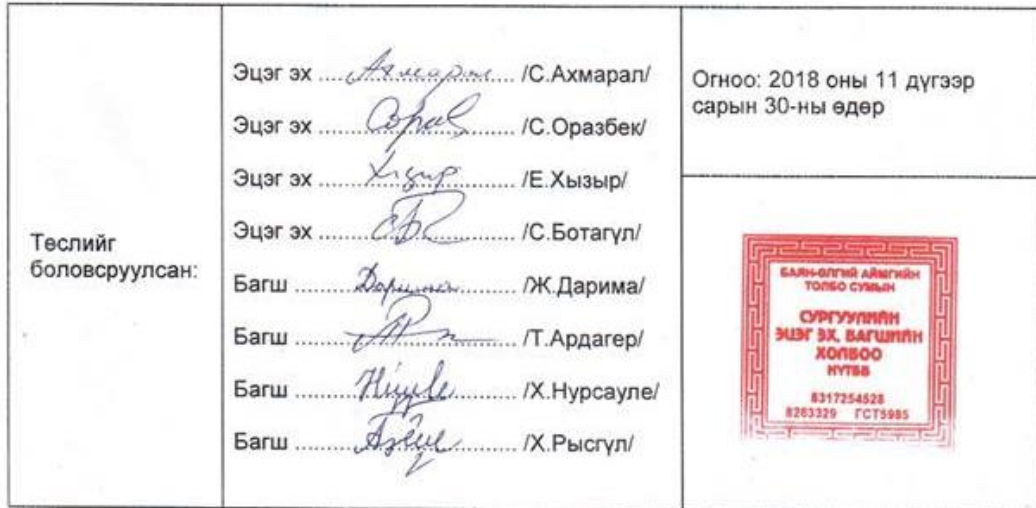 Төслийг
боловсруулсан:
Эцэг эх ................ /С.Ахмарал/
Эцэг эх ................ /С.Оразбек/
Эцэг эх ................ /Е.Хызыр/
Эцэг эх ................ /С.Ботагүл/
Багш ................ /Ж.Дарима/
Багш ................ /Т.Ардагер/
Багш ................ /Х.Нурсауле/
Багш ................ /Х.Рысгүл/
Огноо: 2018 оны 11 дүгээр
сарын 30-ны өдөр
БАЯН-ӨЛГИЙ АЙМГИЙН
ТОЛБО СУМЫН
СУРГУУЛИЙН
ЭЦЭГ ЭХ, БАГШИЙН
ХОЛБОО
НҮТББ
8317254528
8263329 ГСТ5985